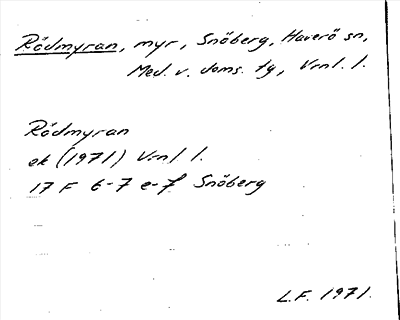 Rödmyran, myr, Snöberg, Haverö sn,
Med. v. doms. tg, Vrnl. l.
Rödmyran
ek (1971) Vrnl l.
17 F 6-7 e-f Snöberg
L.F. 1971.